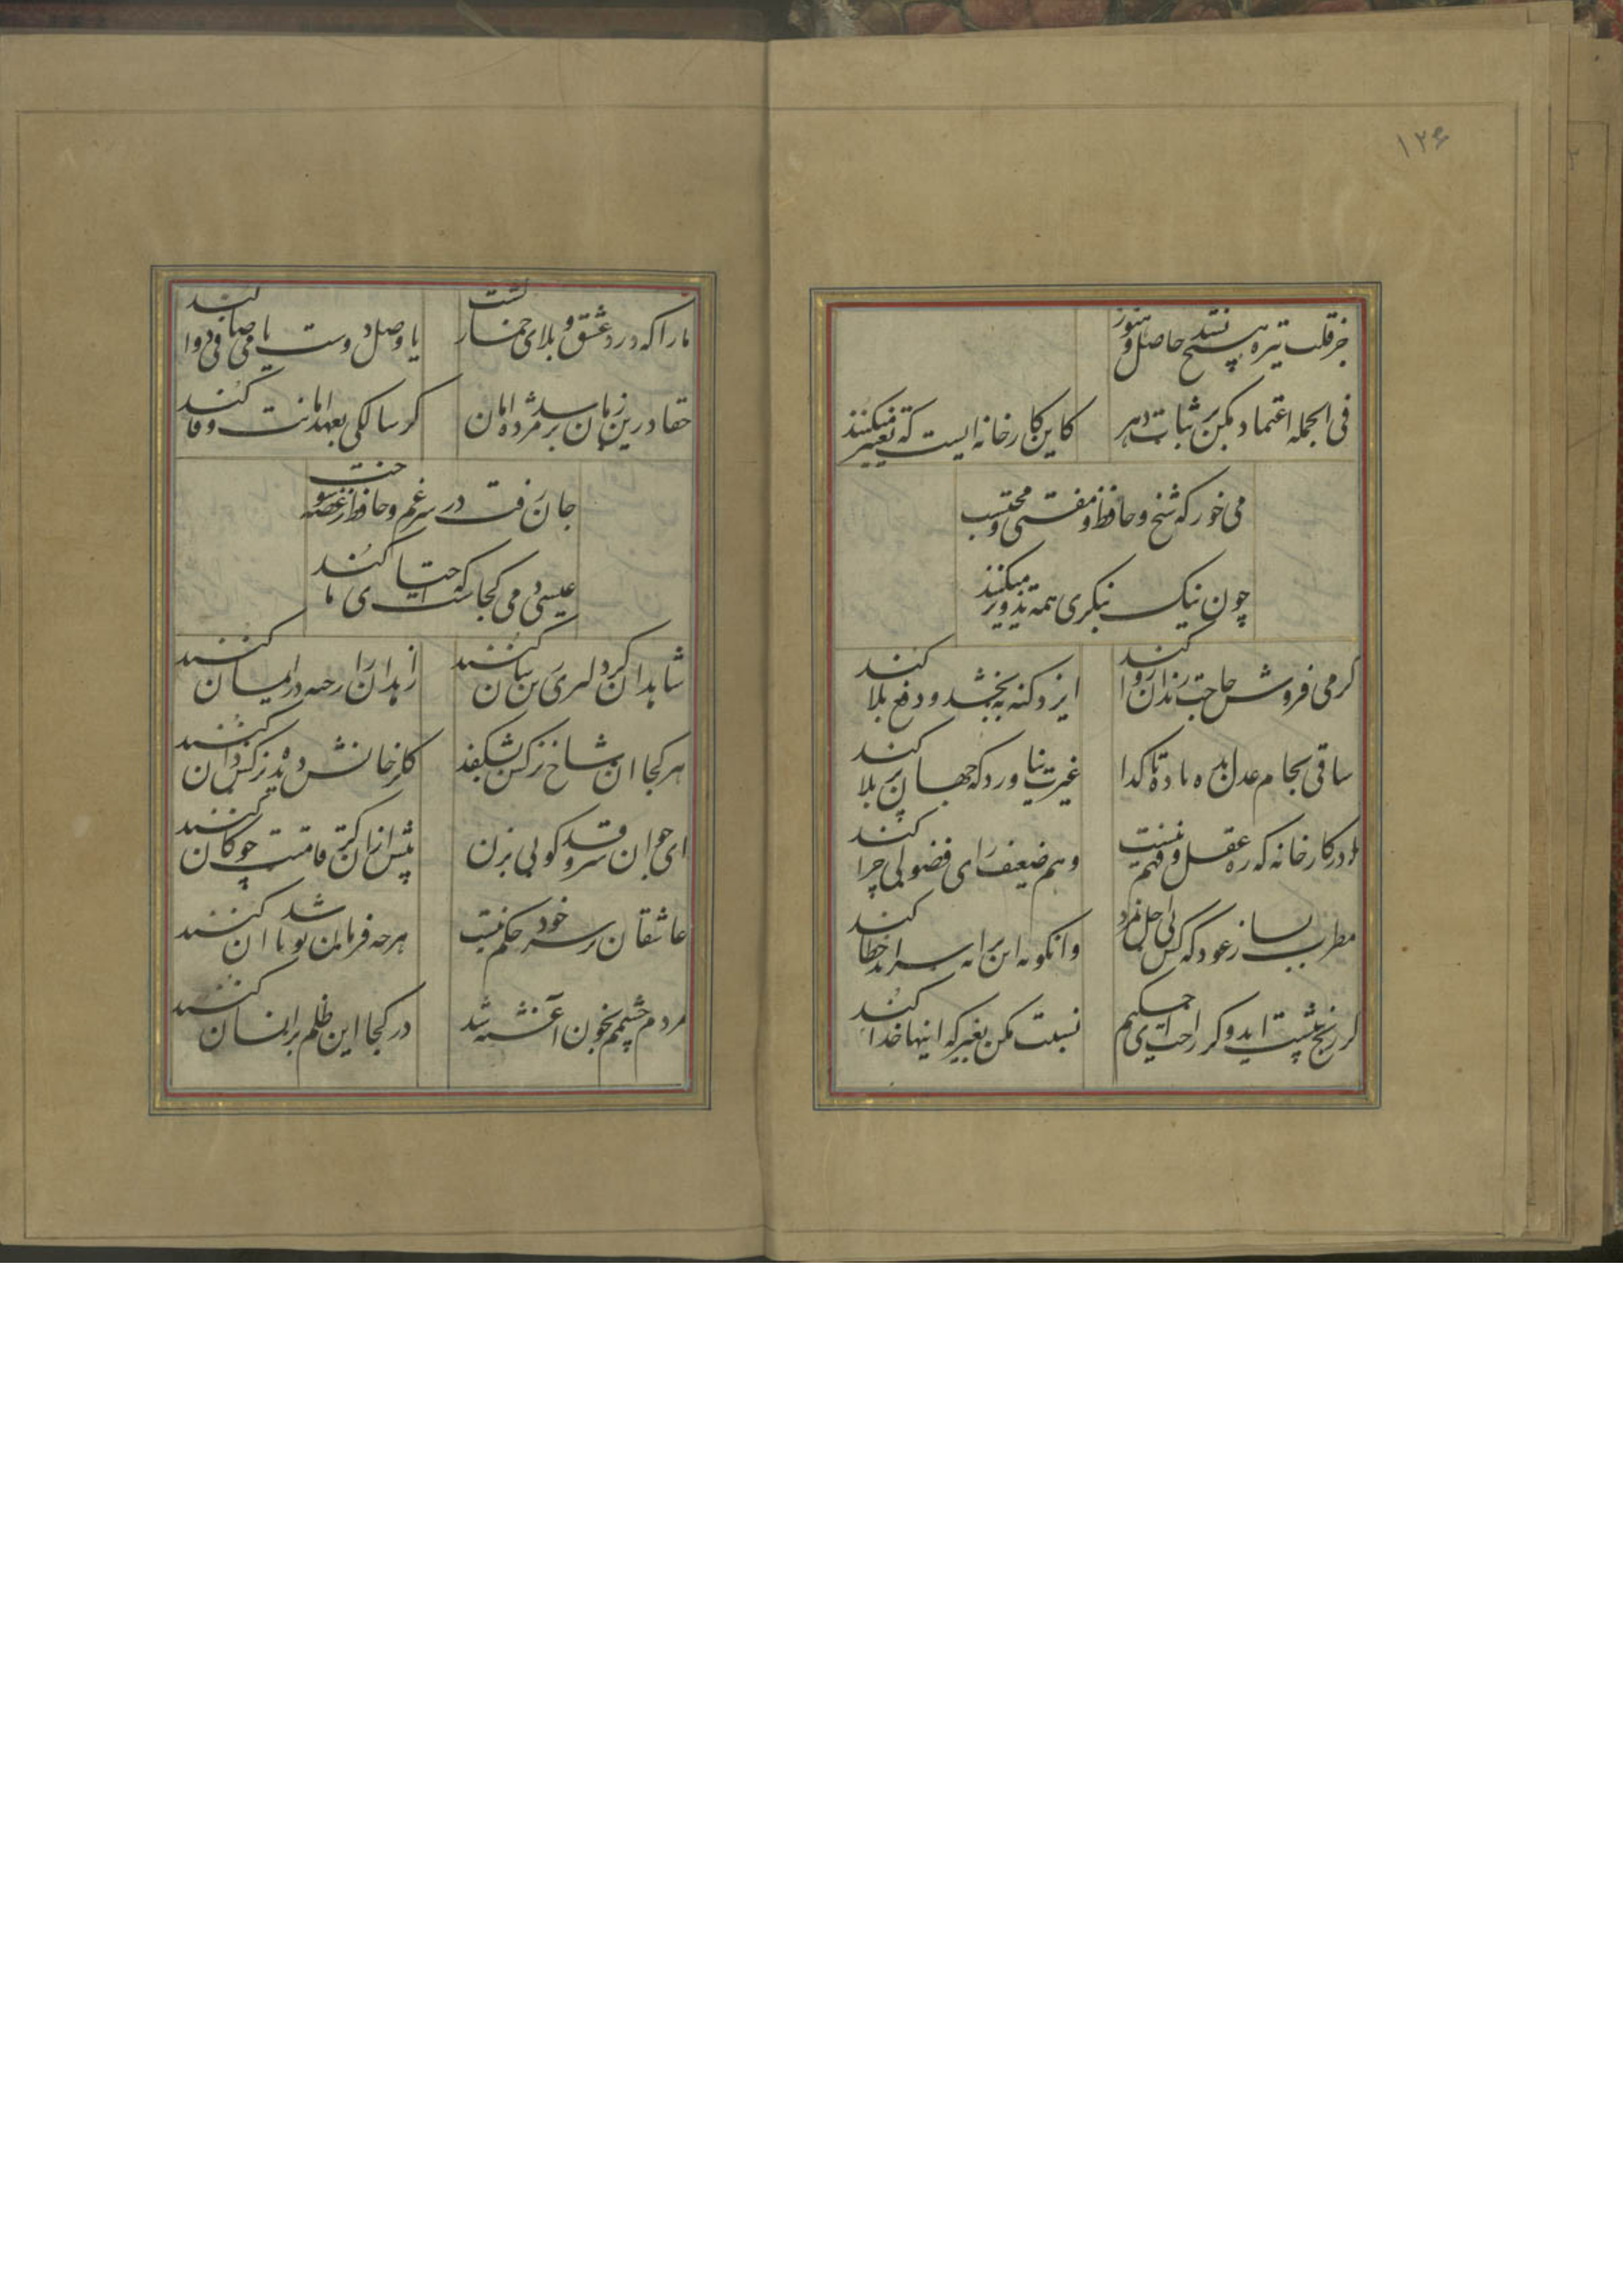 ۱۲۶
جز قلب تیره هیچ نشد حاصل و هنوز
فی الجمله اعتماد مکن بر ثبات دهر
کاین کارخانه ایست که تغییر میکنند
می خور که شیخ و حافظ و مفتی و محتسب
چون نیک بنگری همه تزویر میکنند
کر می فروش حاجت رندان روا کند
ایزد کنه ببخشد و دفع بلا کند
ساقی بجام عدل بده باده تا کدا
غیرت نیاورد که جهان پر بلا کند
در کارخانه که ره عقل و فهم نیست
وهم ضعیف رای فضولی چرا کند
مطرب بساز عود که کس بی اجل نمرد
وانکو نه این ترانه سراید خطا کند
کر رنج پیشت اید و کر راحت ای حکیم
نسبت مکن بغیر که اینها خدا کند
ما را که درد عشق و بلای خمار کشت
یا وصل دوست یا می صافی دوا کند
حقا درین زمان برسد مژده امان
کر سالکی بعهد امانت وفا کند
جان رفت در سر غم و حافظ از غصه سوخت
عیسی دمی کجاست که احیای ما کند
شاهدان کر دلبری زین سان کنند
زاهدان را رخنه در ایمان کنند
هر کجا ان شاخ نرکس بشکفد
کلرخانش دیده نرکس دان کنند
ای جوان سرو قد کویی بزن
پیش از ان کز قامتت چوکان کنند
عاشقان را بر سر خود حکم نیست
هر چه فرمان تو باشد ان کنند
مردم چشمم بخون آغشته شد
در کجا این ظلم بر انسان کنند